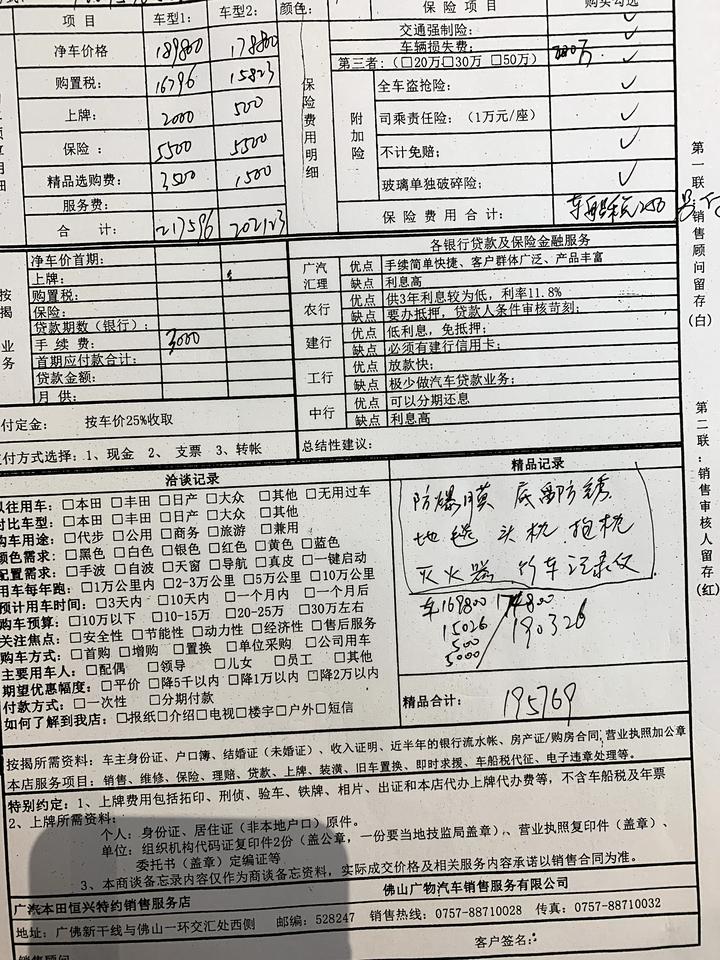 项 目 车型1: 车型2: 颜色:
净车价格 189800 178800
购置税: 16796 15823
上牌: 2000 500
保险: 5500 5500
精品选购费: 3500 1500
服务费:
合 计: 217596 202123
保险费用明细
保 险 项 目 购买勾选
交通强制险: ✓
车辆损失费: ✓
第三者:(□20万□30万 □50万) ✓
附加险
全车盗抢险: ✓
司乘责任险:(1万元/座) ✓
不计免赔; ✓
玻璃单独破碎险; ✓
保 险 费 用 合 计:
第一联:销售顾问留存(白)
净车价首期:
上牌:
购置税:
保险:
贷款期数(银行):
手 续 费: 3000
首期应付款合计:
贷款金额:
月 供:
付定金: 按车价25%收取
付方式选择: 1、现金 2、 支票 3、转帐
各银行贷款及保险金融服务
广汽汇理 优点 手续简单快捷、客户群体广泛、产品丰富
缺点 利息高
农行 优点 供3年利息较为低,利率11.8%
缺点 要办抵押,贷款人条件审核苛刻;
建行 优点 低利息,免抵押;
缺点 必须有建行信用卡;
工行 优点 放款快;
缺点 极少做汽车贷款业务;
中行 优点 可以分期还息
缺点 利息高
总结性建议:
第二联:销售审核人留存(红)
洽谈记录
以往用车: □本田 □丰田 □日产 □大众 □其他 □无用过车
对比车型: □本田 □丰田 □日产 □大众 □其他
购车用途: □代步 □公用 □商务 □旅游 □兼用
颜色需求: □黑色 □白色 □银色 □红色 □黄色 □蓝色
配置需求: □手波 □自波 □天窗 □导航 □真皮 □一键启动
用车每年跑: □1万公里内 □2-3万公里 □5万公里 □10万公里
预计用车时间: □3天内 □10天内 □一个月内 □一个月后
购车预算: □10万以下 □10-15万 □20-25万 □30万左右
关注焦点: □安全性 □节能性 □动力性 □经济性 □售后服务
购车方式: □首购 □增购 □置换 □单位采购 □公司用车
主要用车人: □配偶 □领导 □儿女 □员工 □其他
期望优惠幅度: □平价 □降5千以内 □降1万以内 □降2万以内
付款方式: □一次性 □分期付款
如何了解到我店: □报纸□介绍□电视□楼宇□户外□短信
精品记录
防爆膜 底部防锈
地毯 头枕 抱枕
灭火器 行车记录仪
车169800
15026 190326
500
5000
精品合计: 195769
按揭所需资料: 车主身份证、户口簿、结婚证(未婚证)、收入证明、近半年的银行流水帐、房产证/购房合同,营业执照加公章
本店服务项目: 销售、维修、保险、理赔、贷款、上牌、装潢、旧车置换、即时求援、车船税代征、电子违章处理等。
特别约定: 1、上牌费用包括拓印、刑侦、验车、铁牌、相片、出证和本店代办上牌代办费等,不含车船税及年票
2、上牌所需资料:
个人: 身份证、居住证(非本地户口)原件。
单位: 组织机构代码证复印件2份(盖公章,一份要当地技监局盖章)、营业执照复印件(盖章)、
委托书(盖章)定编证等
3、本商谈备忘录内容仅作为商谈备忘资料,实际成交价格及相关服务内容承诺以销售合同为准。
广汽本田恒兴特约销售服务店 佛山广物汽车销售服务有限公司
地址: 广佛新干线与佛山一环交汇处西侧 邮编: 528247 销售热线: 0757-88710028 传真: 0757-88710032
客户签名: